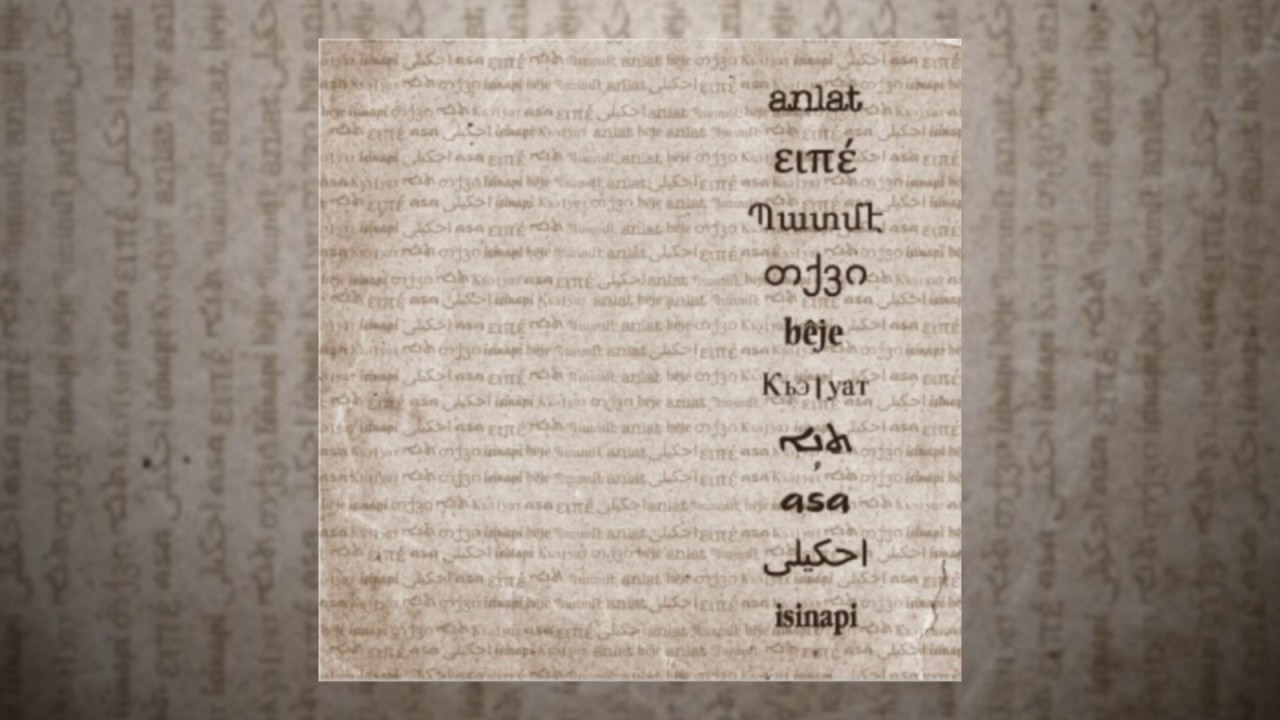 anlat
ειπέ
Պատմէ
თქვი
bêje
Къэӏуат
asa
احكيلى
isinapi